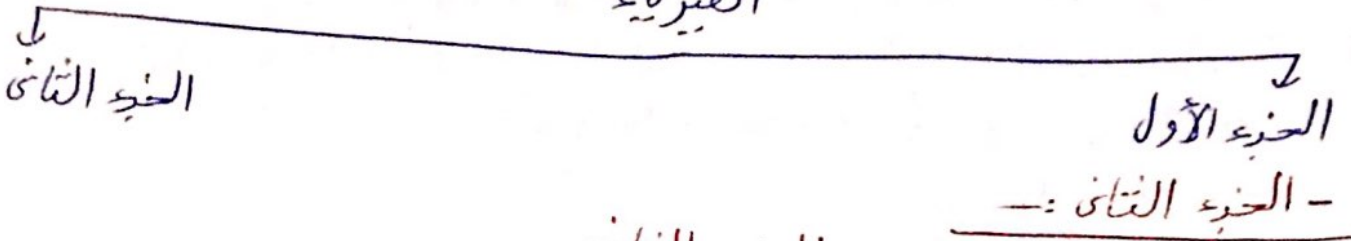 الفيزياء
الجزء الأول
الجزء الثانى
- الجزء الثانى :-